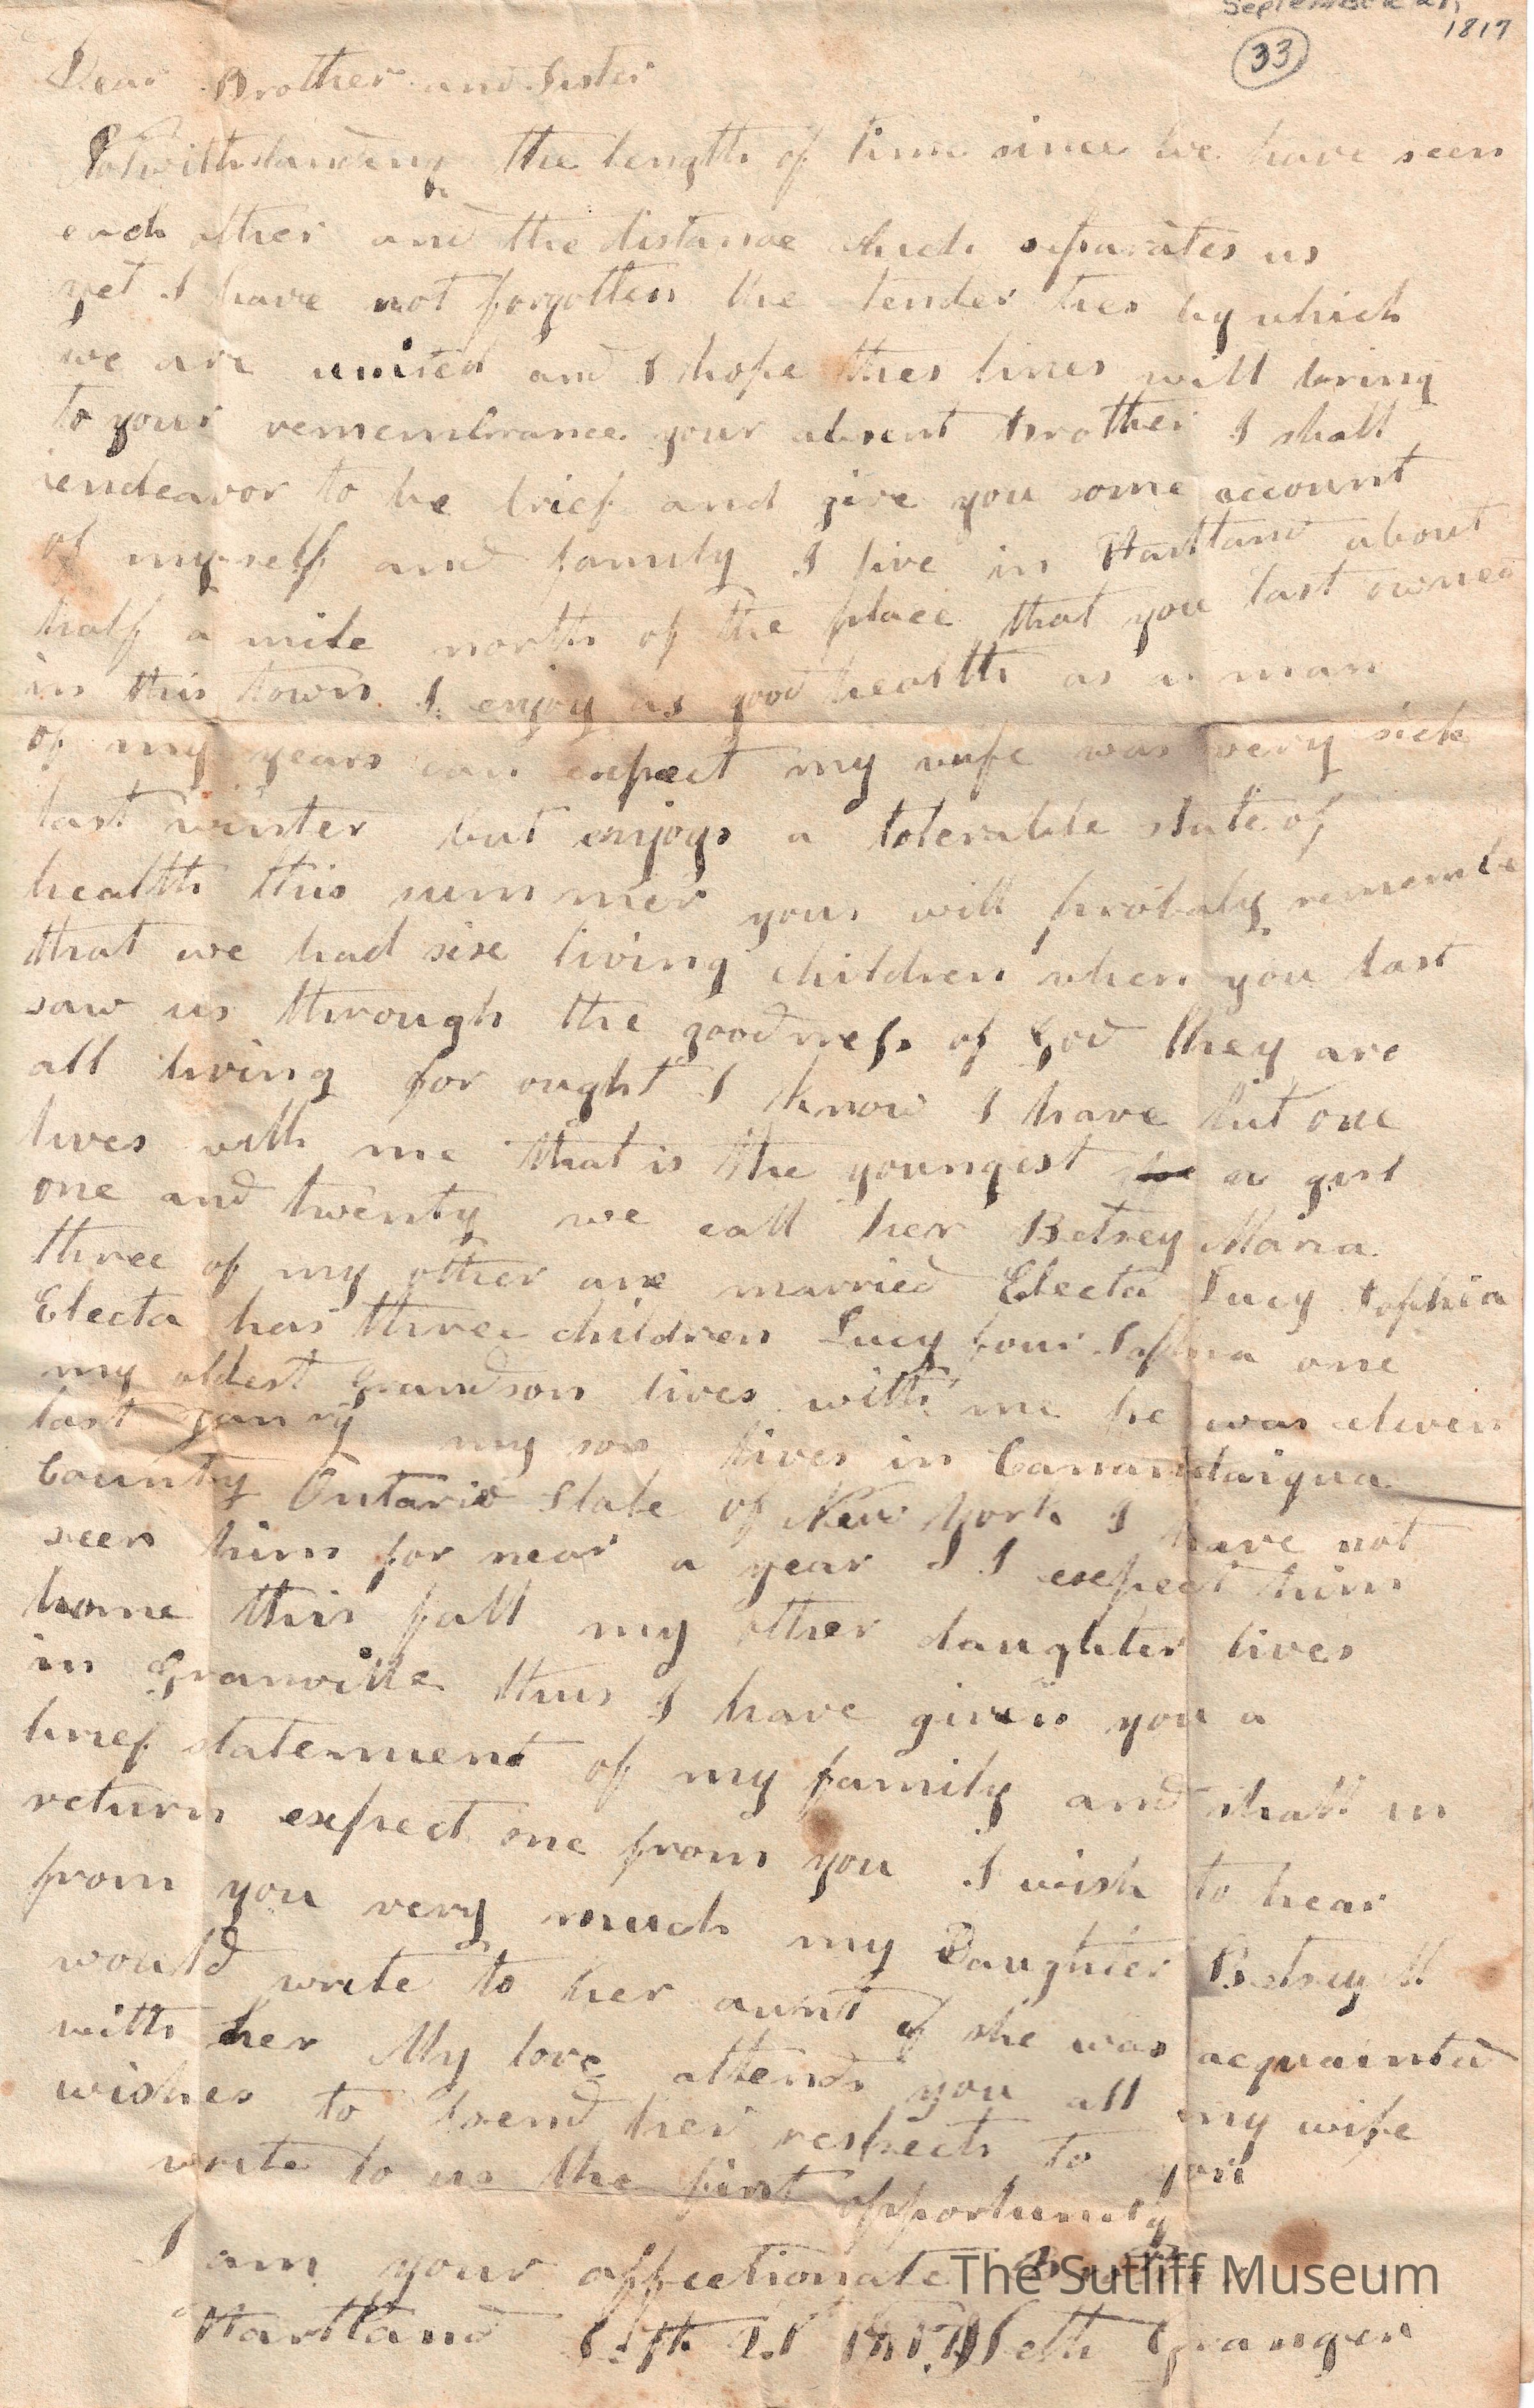 September 21,
1817
33
Dear Brother and Sister
Notwithstanding the length of time since we have seen
each other and the distance which separates us
yet I have not forgotten the tender ties by which
we are united and I hope thes lines will bring
to your remembrance your absent brother I shall
endeavor to be brief and give you some account
of myself and family I live in Hartland about
half a mile north of the place that you last owned
in this town I enjoy as good health as a man
of my years can expect my wife was very sick
last winter but enjoys a tolerable state of
health this summer you will probaly remembe
that we had six living children when you last
saw us through the goodness of God they are
all living for ought I know I have but one
lives with me that is the youngest a girl
one and twenty we call her Betsey Maria
three of my other are married Electa Lucy Sophia
Electa has three children Lucy four Sophia one
my oldest grandson lives with me he was eleven
last Janry my son lives in Canandaigua
County Ontario State of New York I have not
seen him for near a year I I expect him
home this fall my other daughter lives
in Granville thus I have given you a
brief statement of my family and shall in
return expect one from you I wish to hear
from you very much my Daughter Betsey M
would write to her aunt if she was acquainted
with her My love attends you all my wife
wishes to send her respects to you
write to us the first opportunity
I am your affectionate
Hartland Sept 21 1817 Seth Granger
The Sutliff Museum